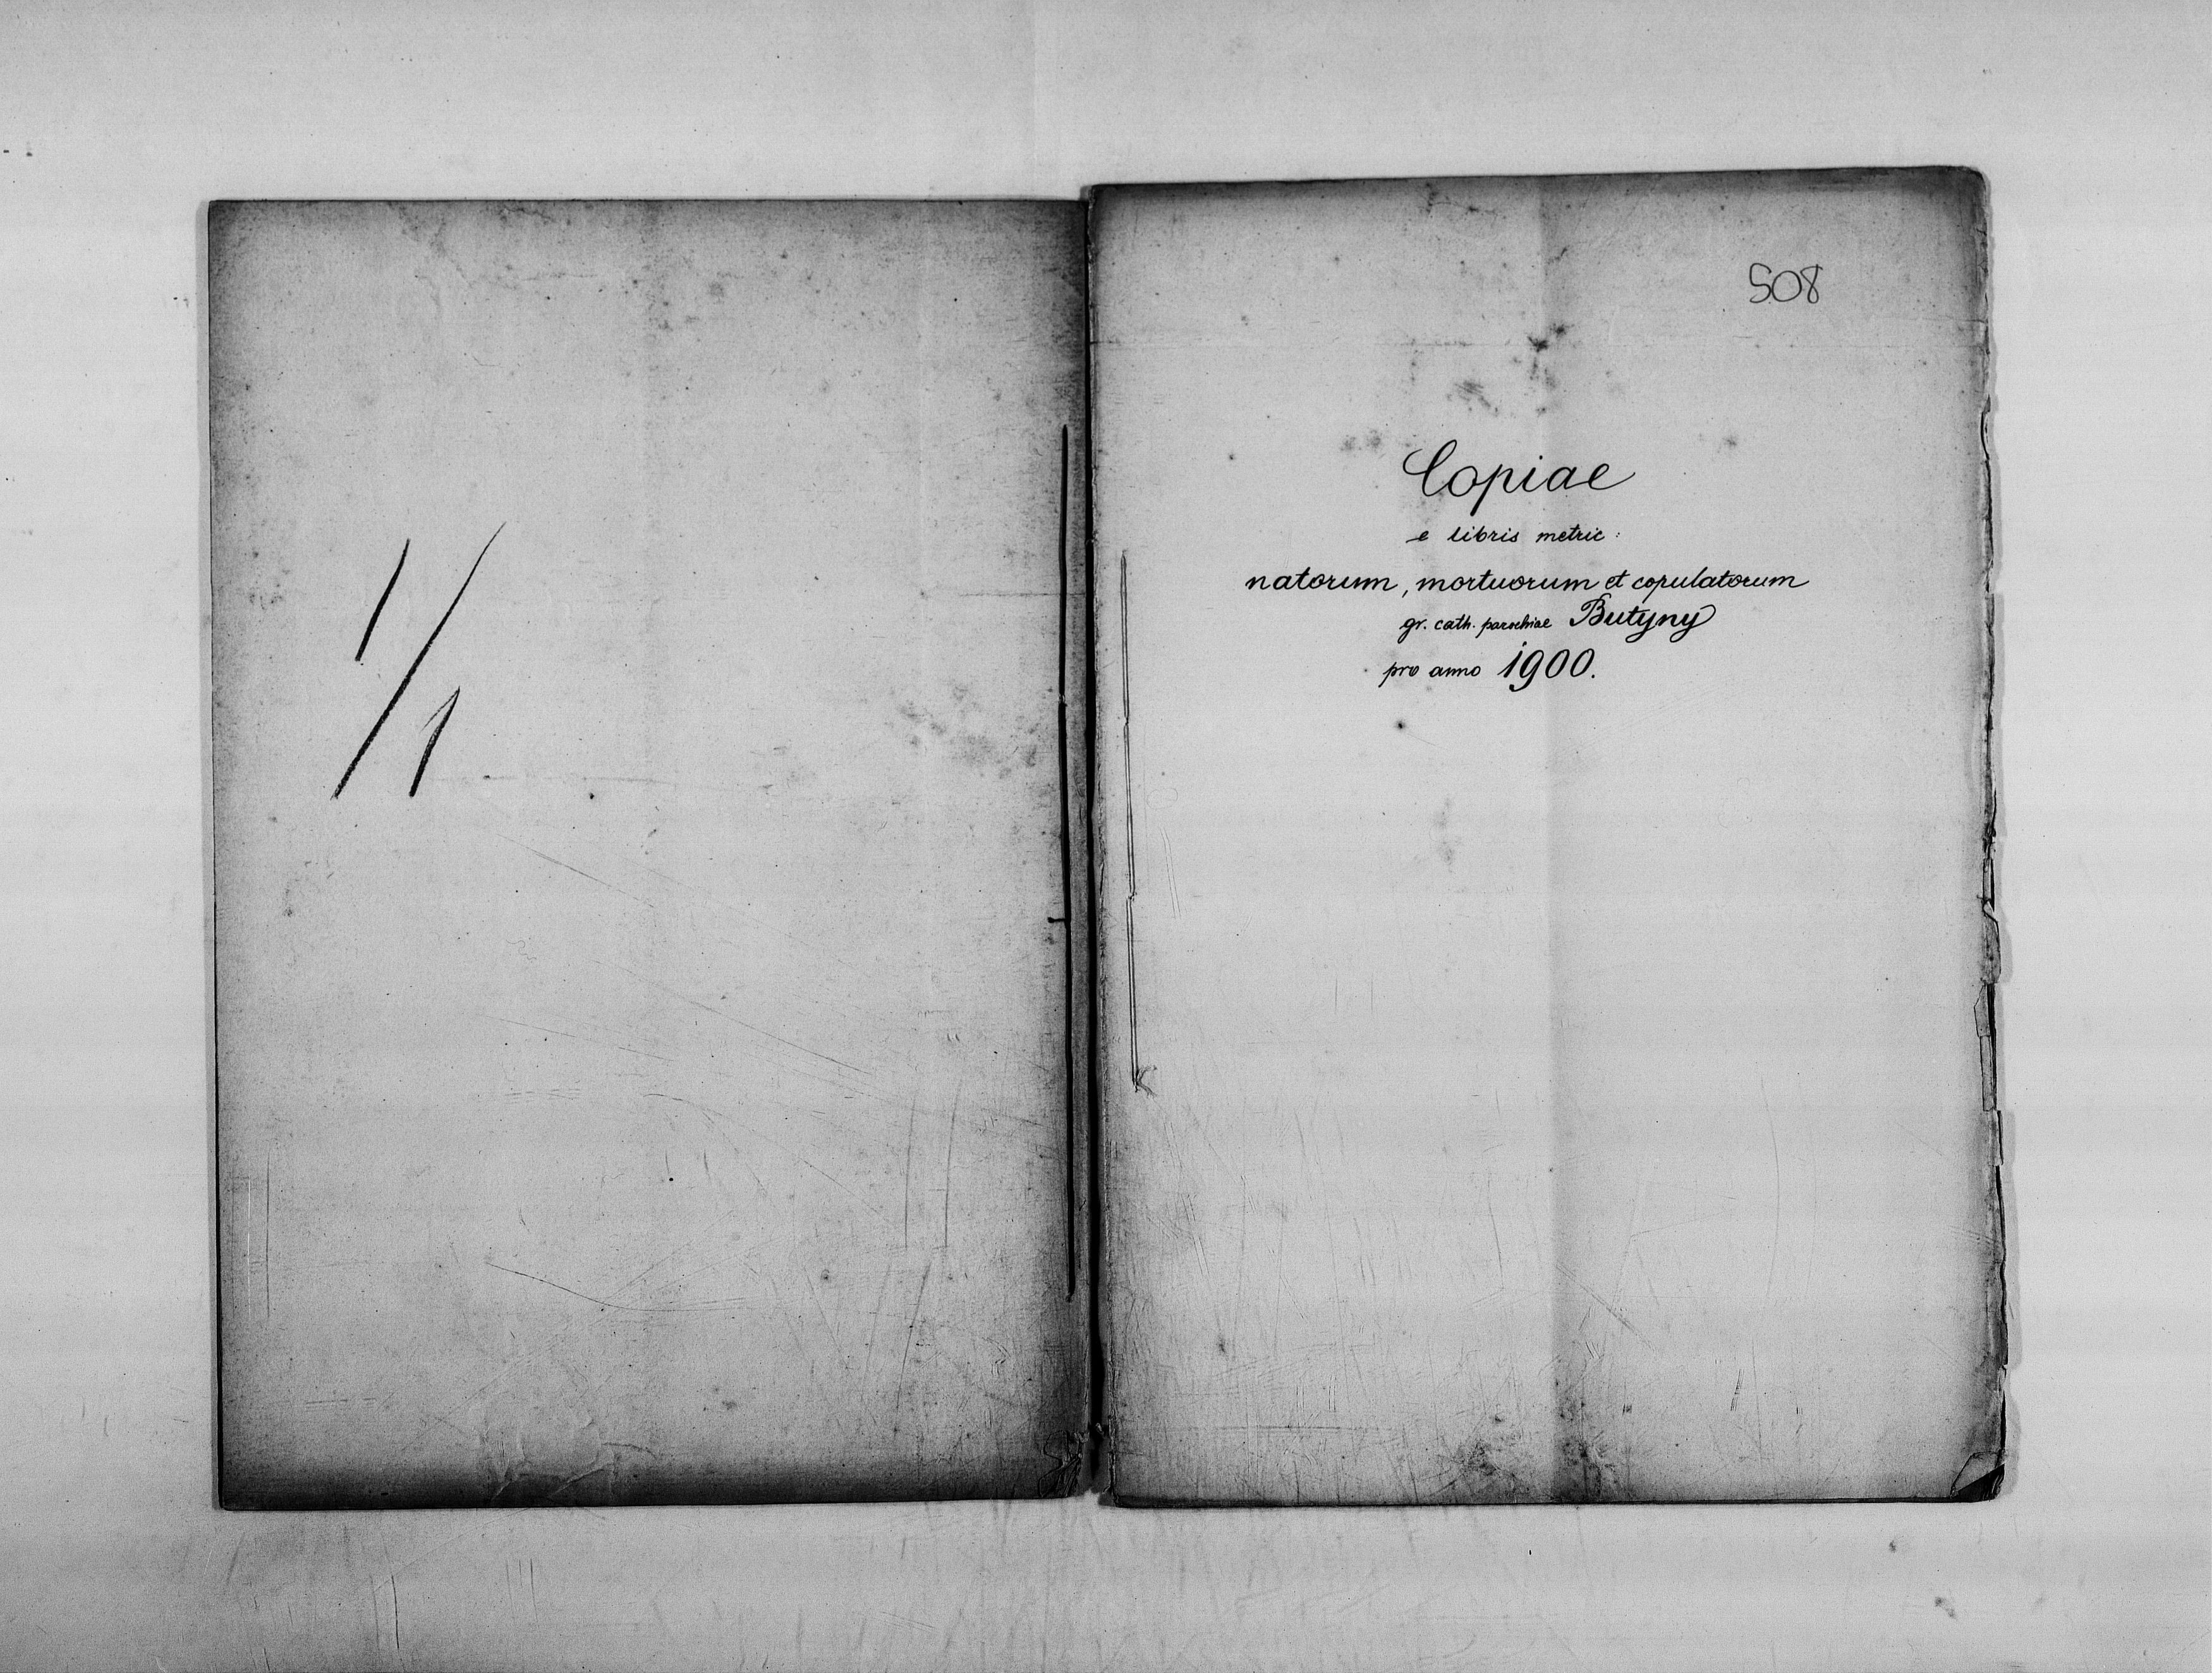 1/1
508
Copiae
e libris metric:
natorum, mortuorum et copulatorum
gr. cath. parochiae Butyny
pro anno 1900.